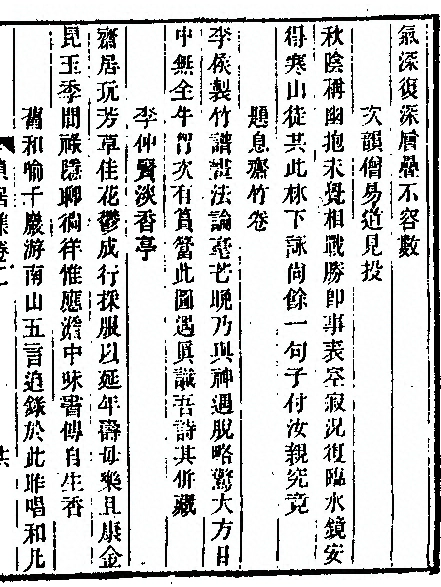 氣深復深層疊不容數
次韻僧易道見投
秋陰稱幽抱未覺相戰勝即事表空寂況復臨水鏡安
得寒山徒共此林下詠尚餘一句子付汝親究竟
題息齋竹卷
李侯製竹譜畫法論毫芒晚乃與神遇脫略驚大方目
中無全牛胷次有篔簹此圖遇眞識吾詩其併藏
李仲賢淡香亭
齋居玩芳草佳花鬱成行採服以延年壽母樂且康金
昆玉季間祿隱聊徜徉惟應澹中味書傳自生香
舊和喻千巖游南山五言追錄於此昨唱和凡